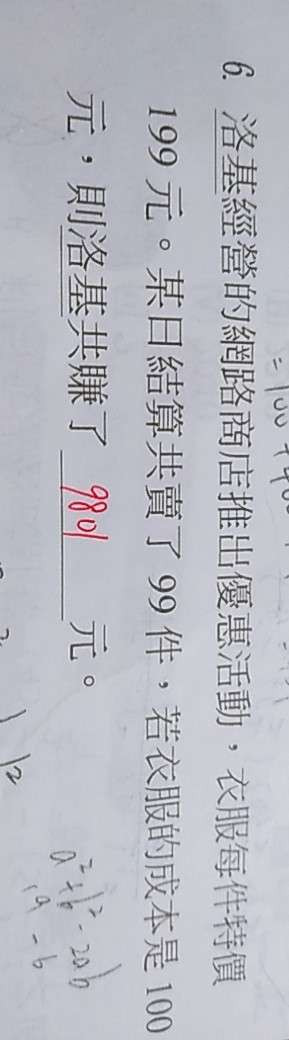 6. 洛基經營的網路商店推出優惠活動，衣服每件特價
199元。某日結算共賣了99件，若衣服的成本是100
元，則洛基共賺了 9801 元。
a²+b²-2ab